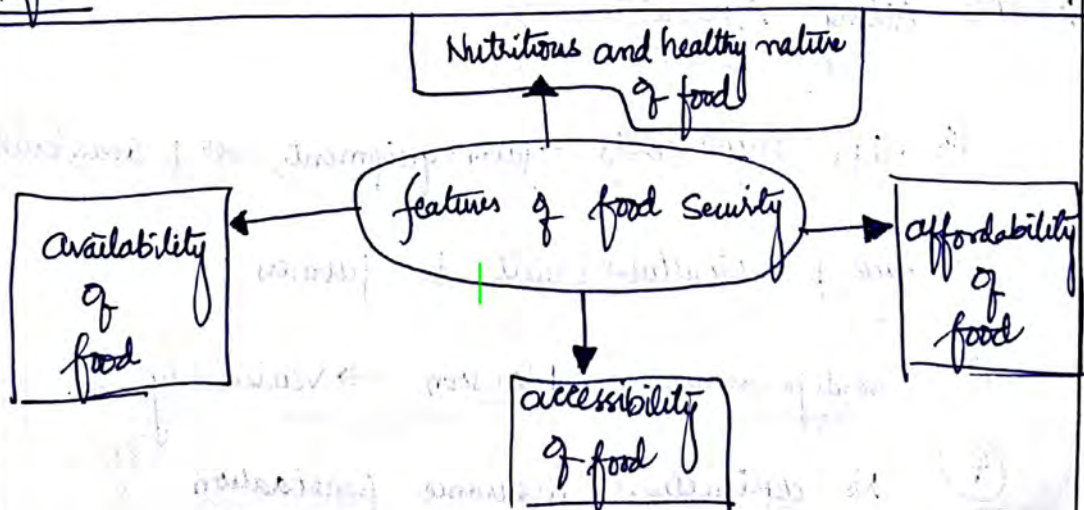 Nutritious and healthy nature
of food
features of food security
availability
of
food
affordability
of
food
accessibility
of food